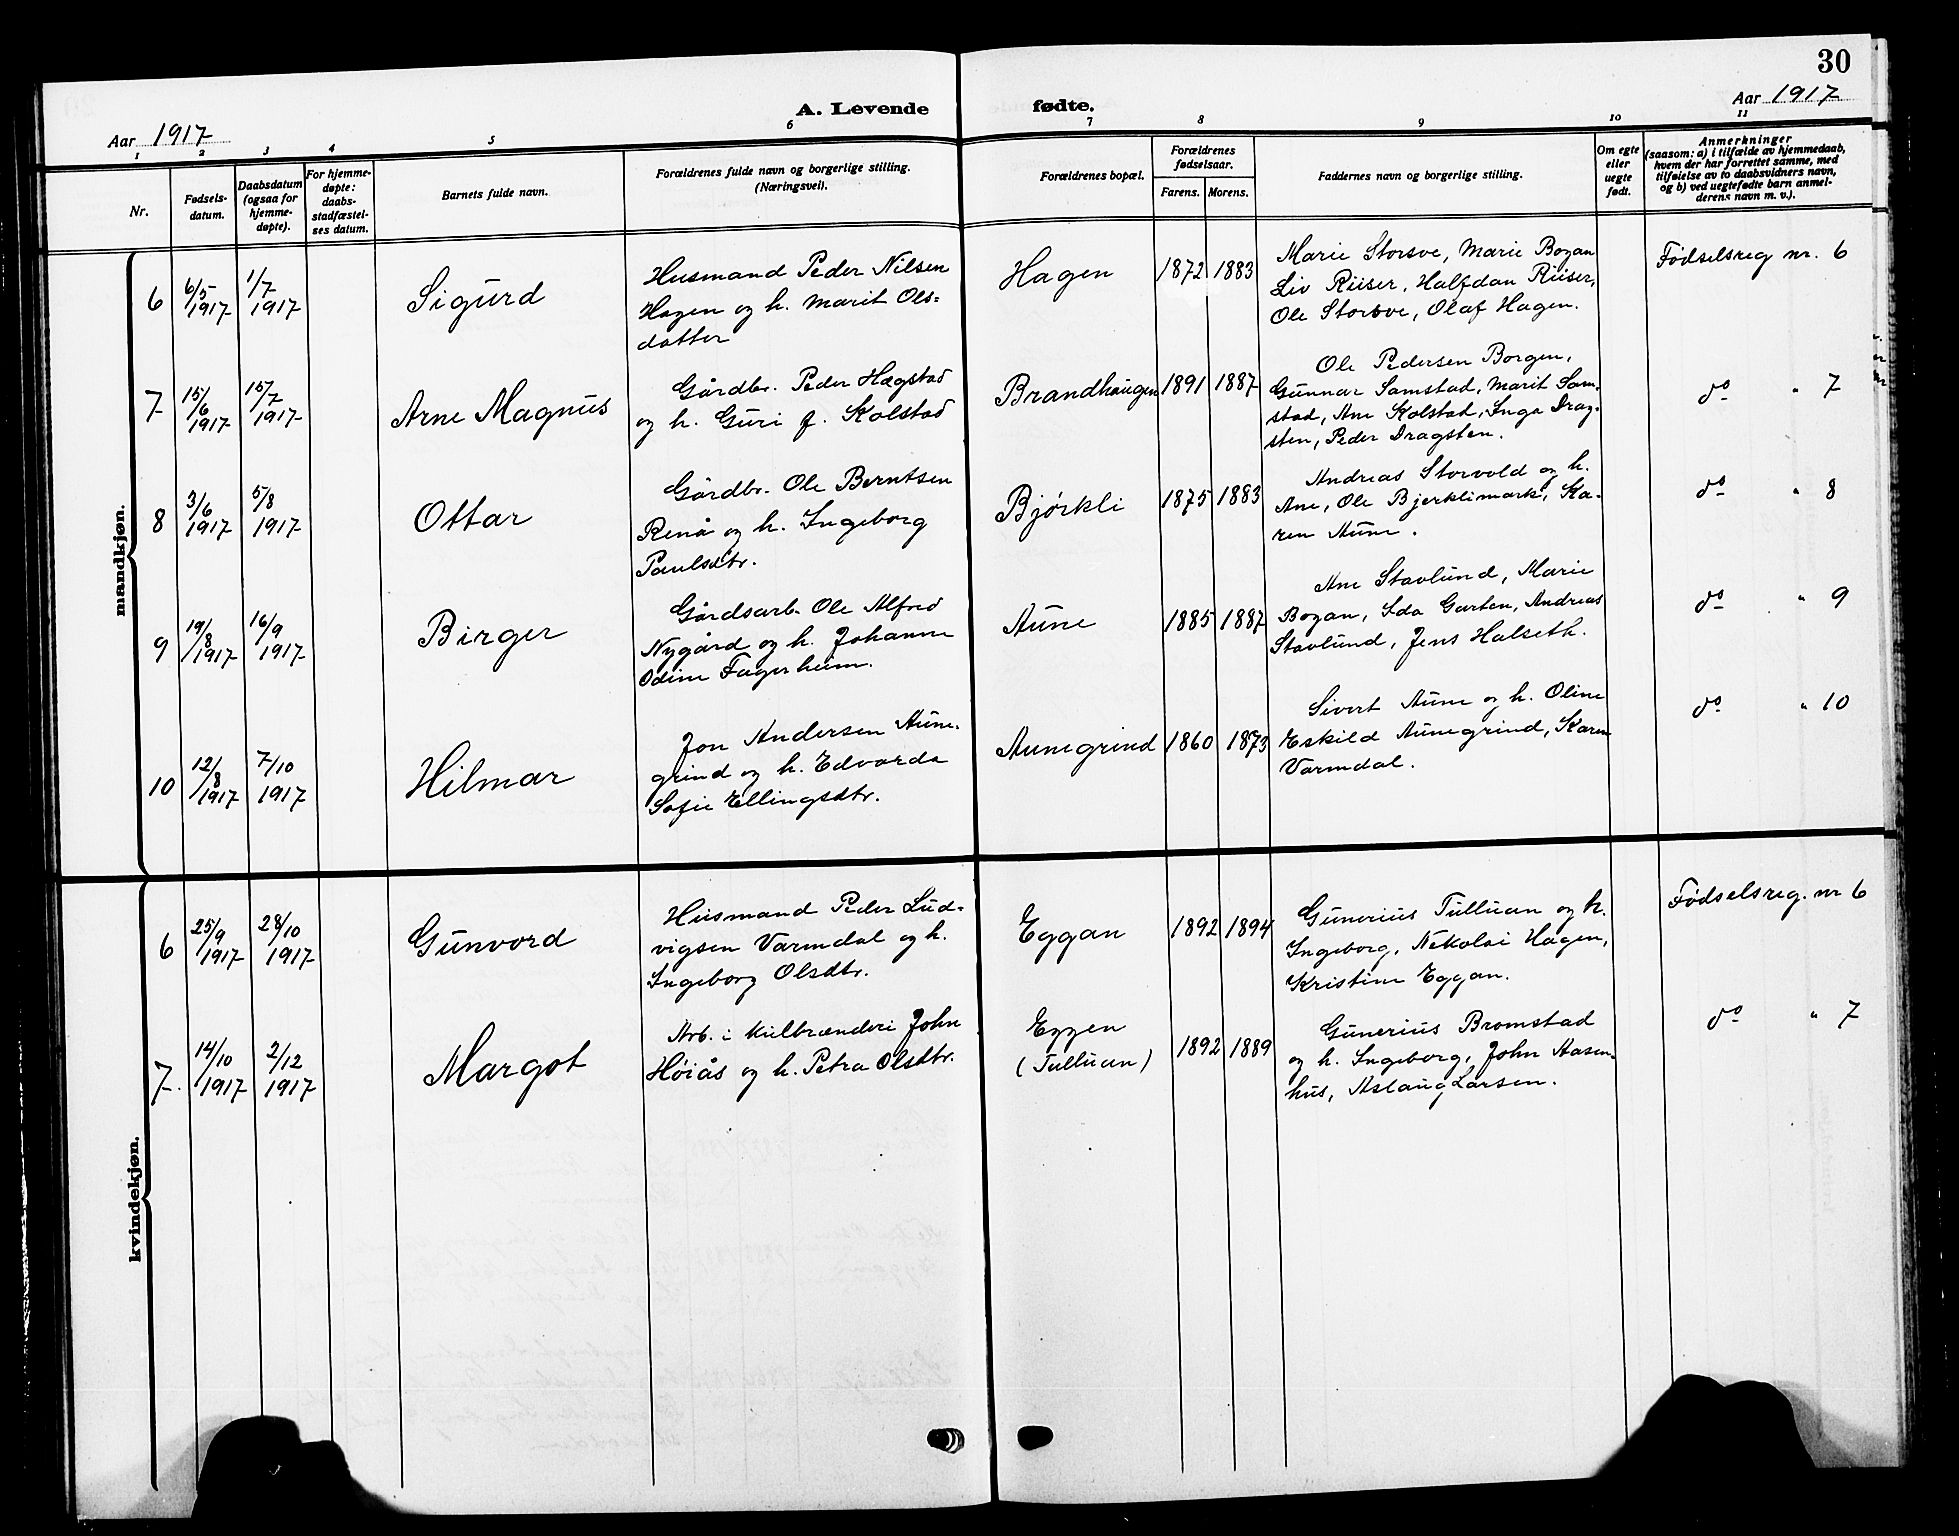 30
A. Levende fødte.
Aar 1917
Aar 1917
1 2 3 4 5 6 7 8 9 10 11
Nr.
Fødsels-
datum.
Daabsdatum
(ogsaa for
hjemme-
døpte).
For hjemme-
døpte:
daabs-
stadfæstel-
ses datum.
Barnets fulde navn.
Forældrenes fulde navn og borgerlige stilling.
(Næringsvei).
Forældrenes bopæl.
Forældrenes
fødselsaar.
Farens. Morens.
Faddernes navn og borgerlige stilling.
Om egte
eller
uegte
født.
Anmerkninger
(saasom: a) i tilfælde av hjemmedaab,
hvem der har forrettet samme, med
tilføielse av to daabsvidners navn,
og b) ved uegtefødte barn anmel-
derens navn m. v.).
mandkjøn.
6
6/5
1917
1/7
1917
Sigurd
Husmand Peder Nilsen
Hagen og h. Marit Ols=
datter
Hagen
1872 1883
Marie Storsve, Marie Bogan
Liv Riiser, Halfdan Riiser,
Ole Storsve, Olaf Hagen.
Fødselsreg nr. 6
7
15/
6
1917
15/
7
1917
Arne Magnus
Gårdbr. Peder Hægstad
og h. Guri f. Kolstad
Brandhaugen
1891 1887
Ole Pedersen Borgen,
Gunnar Samstad, Marit Sam-
stad, Ane Kolstad, Inga Drag-
sten, Peder Dragsten.
do " 7
8
3/6
1917
5/8
1917
Ottar
Gårdbr. Ole Berntsen
Renå og h. Ingeborg
Paulsdtr.
Bjørkli
1875 1883
Andreas Storvold og h.
Ane, Ole Bjerklimark, Ka-
ren Aune.
do " 8
9
19/
8
1917
16/9
1917
Birger
Gårdsarb. Ole Alfred
Nygård og h. Johanne
Odine Fagerheim.
Aune
1885 1887
Ane Stavlund, Marie
Bogan, Ida Garten, Andreas
Stavlund, Jens Halseth.
do " 9
10
12/
8
1917
7/10
1917
Hilmar
Jon Andersen Aune-
grind og h. Edvarda
Sofie Ellingsdtr.
Aunegrind
1860 1873
Sivert Aune og h. Oline
Eskild Aunegrind, Karen
Varmdal.
do " 10
kvindekjøn.
6
25/9
1917
28/10
1917
Gunvord
Husmand Peder Lud-
vigsen Varmdal og h.
Ingeborg Olsdtr.
Eggan
1892 1894
Gunerius Tulluan og h.
Ingeborg, Nekolai Hagen,
Kristine Eggan.
Fødselsreg. nr 6
7.
14/10
1917
2/12
1917
Margot
Arb. i kulbrænderi John
Høiås og h. Petra Olsdtr.
Eggen
(Tulluan)
1892 1889
Gunerius Bromstad
og h. Ingeborg, John Aasen-
hus, Aslaug Larsen.
do " 7